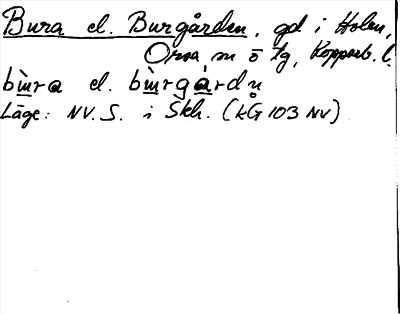 Bura el. Burgården, gd i Holen,
Orsa sn ö tg, Kopparb. l.
bɯ̀ra el. bɯ̀rgạrdn̥
Läge: NV. S. i Skh. (kG 103 NV)